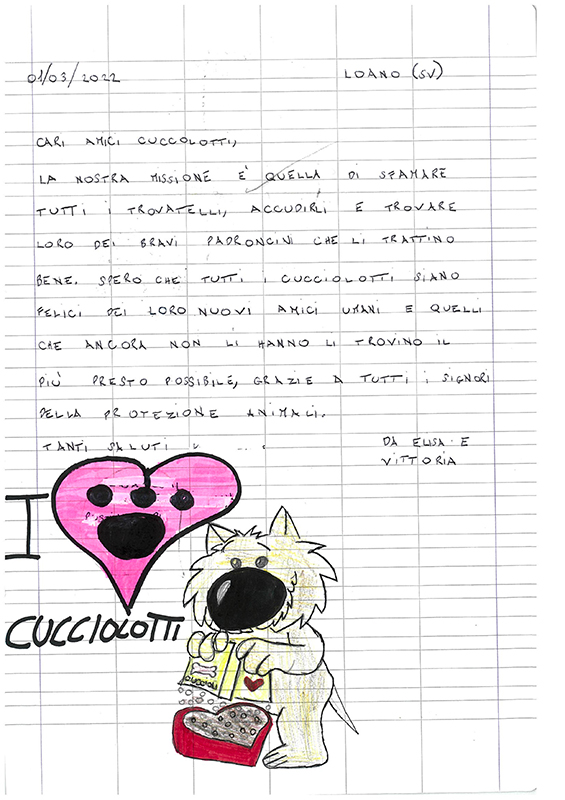 01/03/2022 LOANO (SV)
CARI AMICI CUCCOLOTTI,
LA NOSTRA MISSIONE È QUELLA DI SFAMARE
TUTTI I TROVATELLI, ACCUDIRLI E TROVARE
LORO DEI BRAVI PADRONCINI CHE LI TRATTINO
BENE. SPERO CHE TUTTI I CUCCIOLOTTI SIANO
FELICI DEI LORO NUOVI AMICI UMANI E QUELLI
CHE ANCORA NON LI HANNO LI TROVINO IL
PIÙ PRESTO POSSIBILE, GRAZIE A TUTTI I SIGNORI
DELLA PROTEZIONE ANIMALI.
TANTI SALUTI
DA ELISA E
VITTORIA
I
CUCCIOLOTTI
CUCCIOLI